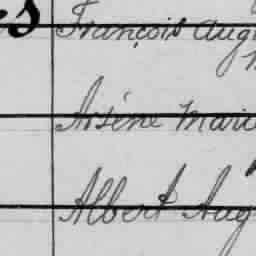 François Aug
Arsène Marie
Albert Aug